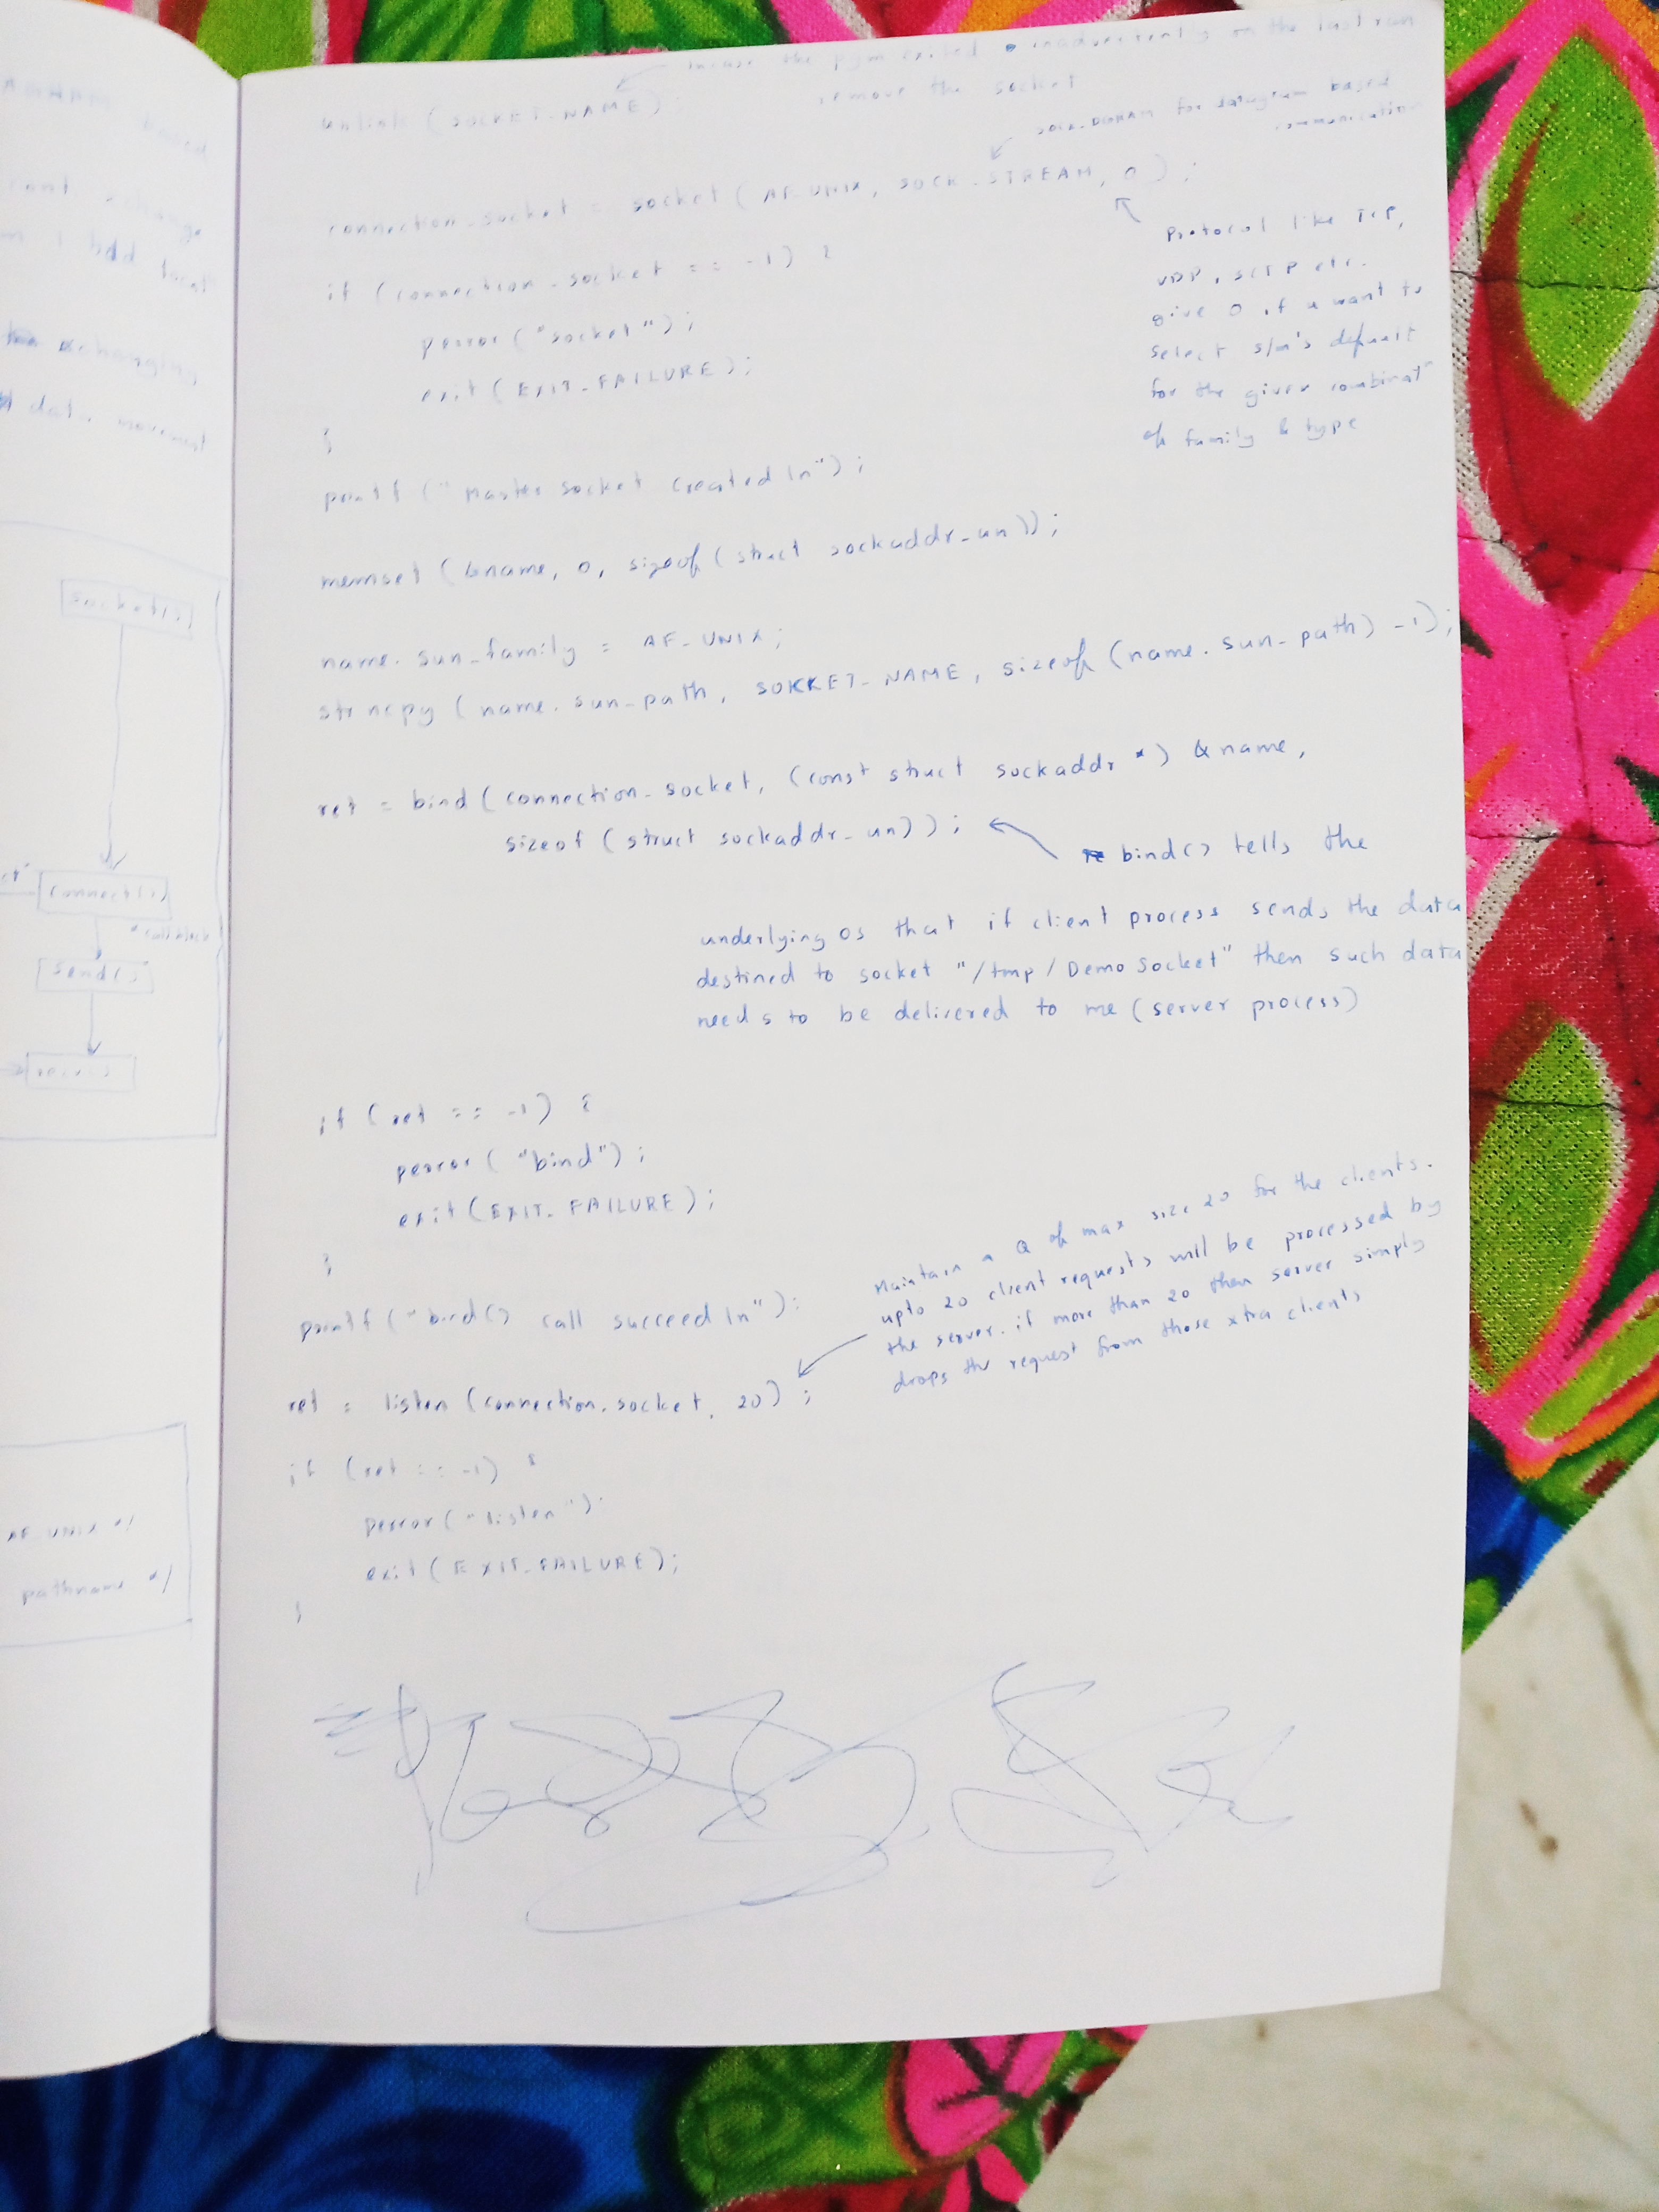 incase the pgm exited inadvertently on the last run
remove the socket
unlink (SOCKET_NAME);
SOCK_DGRAM for datagram based
communication
connection_socket = socket ( AF_UNIX, SOCK_STREAM, 0 );
Protocol like TCP,
UDP, SCTP etc.
give 0 if u want to
select s/m's default
for the given combinat
of family & type
if (connection_socket == -1) {
perror ("socket");
exit (EXIT_FAILURE);
}
printf ("Master socket created \n");
memset (&name, 0, sizeof ( struct sockaddr_un));
name. sun_family = AF_UNIX;
strncpy ( name. sun_path, SOKKET_NAME, sizeof (name. sun_path) -1);
ret = bind ( connection_socket, (const struct sockaddr *) &name,
sizeof ( struct sockaddr_un));
bind() tells the
underlying os that if client process sends the data
destined to socket "/tmp/Demo Socket" then such data
needs to be delivered to me (server process)
if (ret == -1) {
perror ( "bind");
exit (EXIT_FAILURE);
}
printf ("bind() call succeed \n");
Maintain a Q of max size 20 for the clients.
upto 20 client requests will be processed by
the server. if more than 20 then server simply
drops the request from those xtra clients
ret = listen (connection_socket, 20);
if (ret == -1) {
perror ("listen");
exit (EXIT_FAILURE);
}
socket()
connect()
send()
AF_UNIX */
pathname */